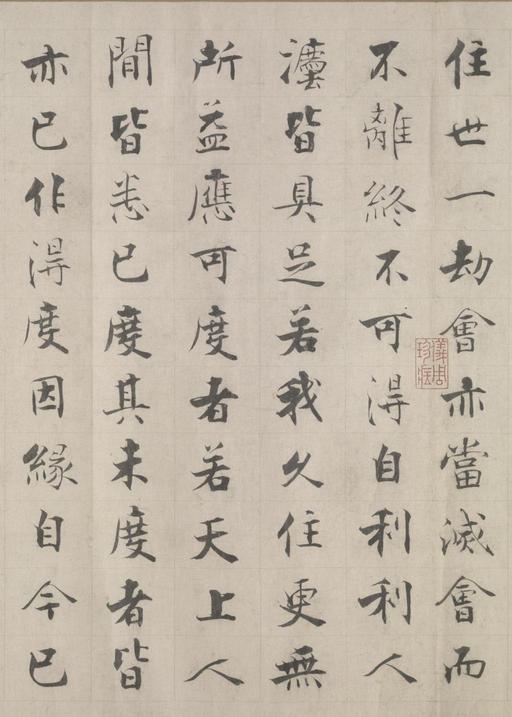 住世一劫會亦當滅會而
不離終不可得自利利人
灋皆具足若我久住更無
所益應可度者若天上人
間皆悉已度其未度者皆
亦已作得度因緣自今已